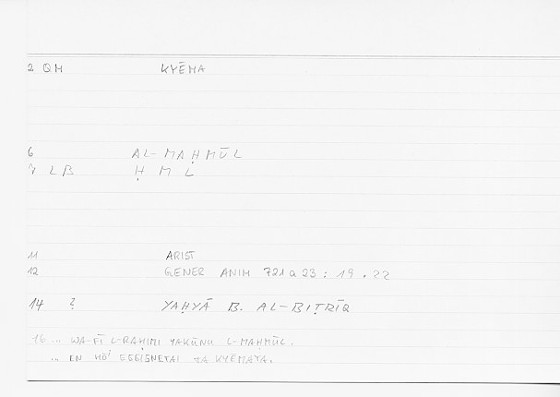 2 QM KYĒMA
6 AL-MAḤMŪL
LB Ḥ M L
11 ARIST
12 GENER ANIM 721a23 : 19.22
14 ? YAḤYĀ B. AL-BIṬRĪQ
16 ... WA-FĪ L-RAḤIMI YAKŪNU L-MAḤMŪL.
... EN HŌI EGGIGNETAI TA KYĒMATA.